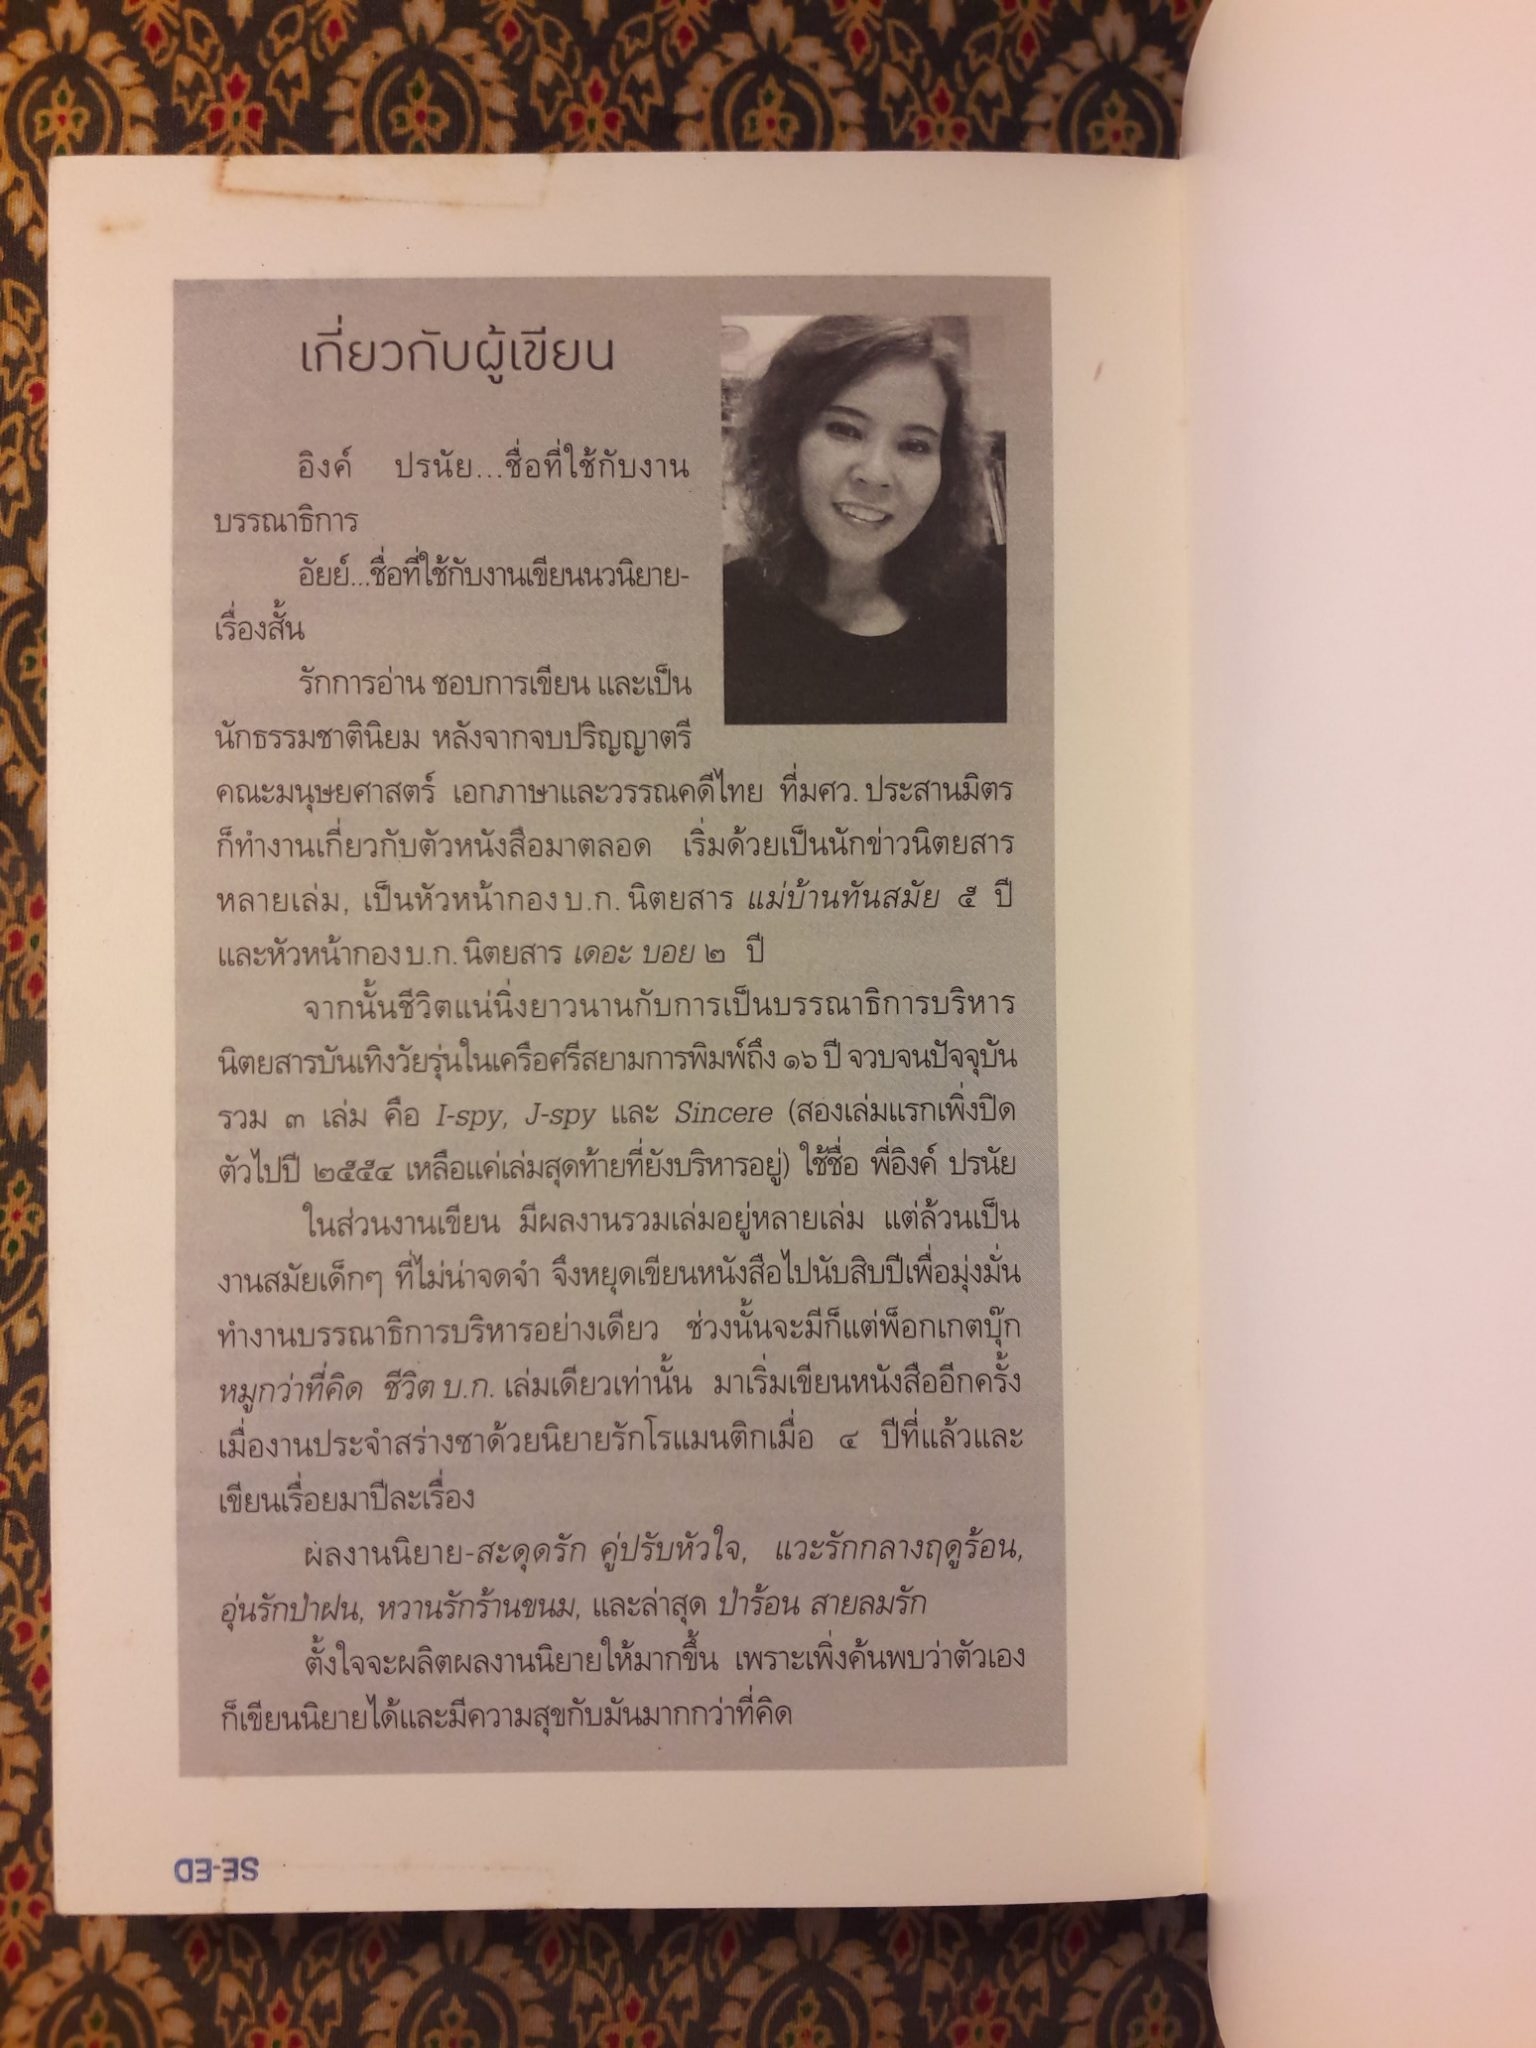 เกี่ยวกับผู้เขียน
อิงค์ ปรนัย...ชื่อที่ใช้กับงาน
บรรณาธิการ
อัยย์...ชื่อที่ใช้กับงานเขียนนวนิยาย-
เรื่องสั้น
รักการอ่าน ชอบการเขียน และเป็น
นักธรรมชาตินิยม หลังจากจบปริญญาตรี
คณะมนุษยศาสตร์ เอกภาษาและวรรณคดีไทย ที่มศว. ประสานมิตร
ก็ทำงานเกี่ยวกับตัวหนังสือมาตลอด เริ่มด้วยเป็นนักข่าวนิตยสาร
หลายเล่ม, เป็นหัวหน้ากอง บ.ก. นิตยสาร แม่บ้านทันสมัย ๕ ปี
และหัวหน้ากอง บ.ก. นิตยสาร เดอะ บอย ๒ ปี
จากนั้นชีวิตแน่นิ่งยาวนานกับการเป็นบรรณาธิการบริหาร
นิตยสารบันเทิงวัยรุ่นในเครือศรีสยามการพิมพ์ถึง ๑๖ ปี จวบจนปัจจุบัน
รวม ๓ เล่ม คือ I-spy, J-spy และ Sincere (สองเล่มแรกเพิ่งปิด
ตัวไปปี ๒๕๕๔ เหลือแค่เล่มสุดท้ายที่ยังบริหารอยู่) ใช้ชื่อ พี่อิงค์ ปรนัย
ในส่วนงานเขียน มีผลงานรวมเล่มอยู่หลายเล่ม แต่ล้วนเป็น
งานสมัยเด็กๆ ที่ไม่น่าจดจำ จึงหยุดเขียนหนังสือไปนับสิบปีเพื่อมุ่งมั่น
ทำงานบรรณาธิการบริหารอย่างเดียว ช่วงนั้นจะมีก็แต่พ็อกเกตบุ๊ก
หมูกว่าที่คิด ชีวิต บ.ก. เล่มเดียวเท่านั้น มาเริ่มเขียนหนังสืออีกครั้ง
เมื่องานประจำสร่างซาด้วยนิยายรักโรแมนติกเมื่อ ๔ ปีที่แล้วและ
เขียนเรื่อยมาปีละเรื่อง
ผลงานนิยาย-สะดุดรัก คู่ปรับหัวใจ, แวะรักกลางฤดูร้อน,
อุ่นรักป่าฝน, หวานรักร้านขนม, และล่าสุด ป่าร้อน สายลมรัก
ตั้งใจจะผลิตผลงานนิยายให้มากขึ้น เพราะเพิ่งค้นพบว่าตัวเอง
ก็เขียนนิยายได้และมีความสุขกับมันมากกว่าที่คิด
SE-ED